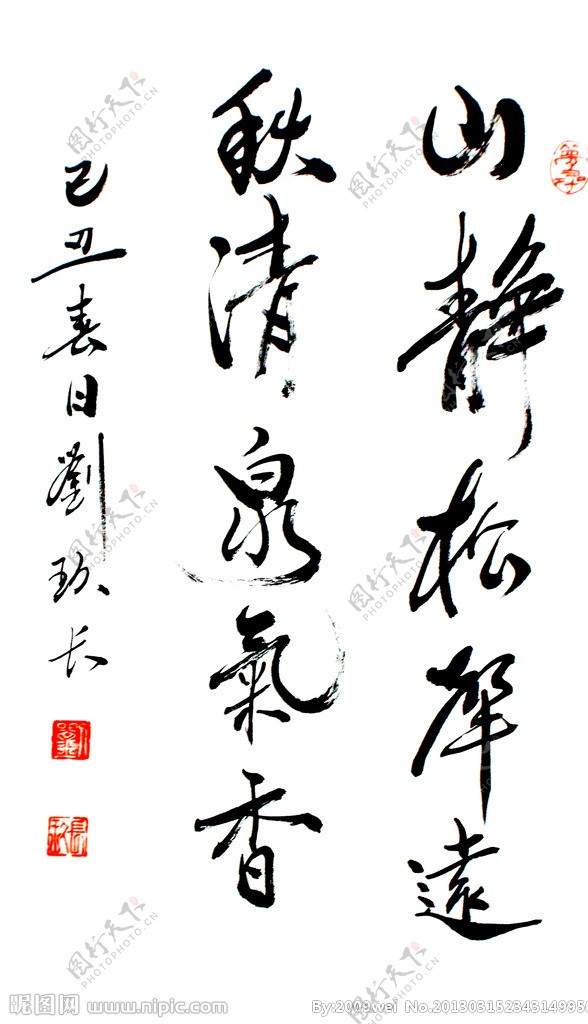 山靜松聲遠
秋清泉氣香
己丑春日劉玖长
图行天下
PHOTOPHOTO.CN
昵图网 www.nipic.com
By:2009wei No.20130315234314995